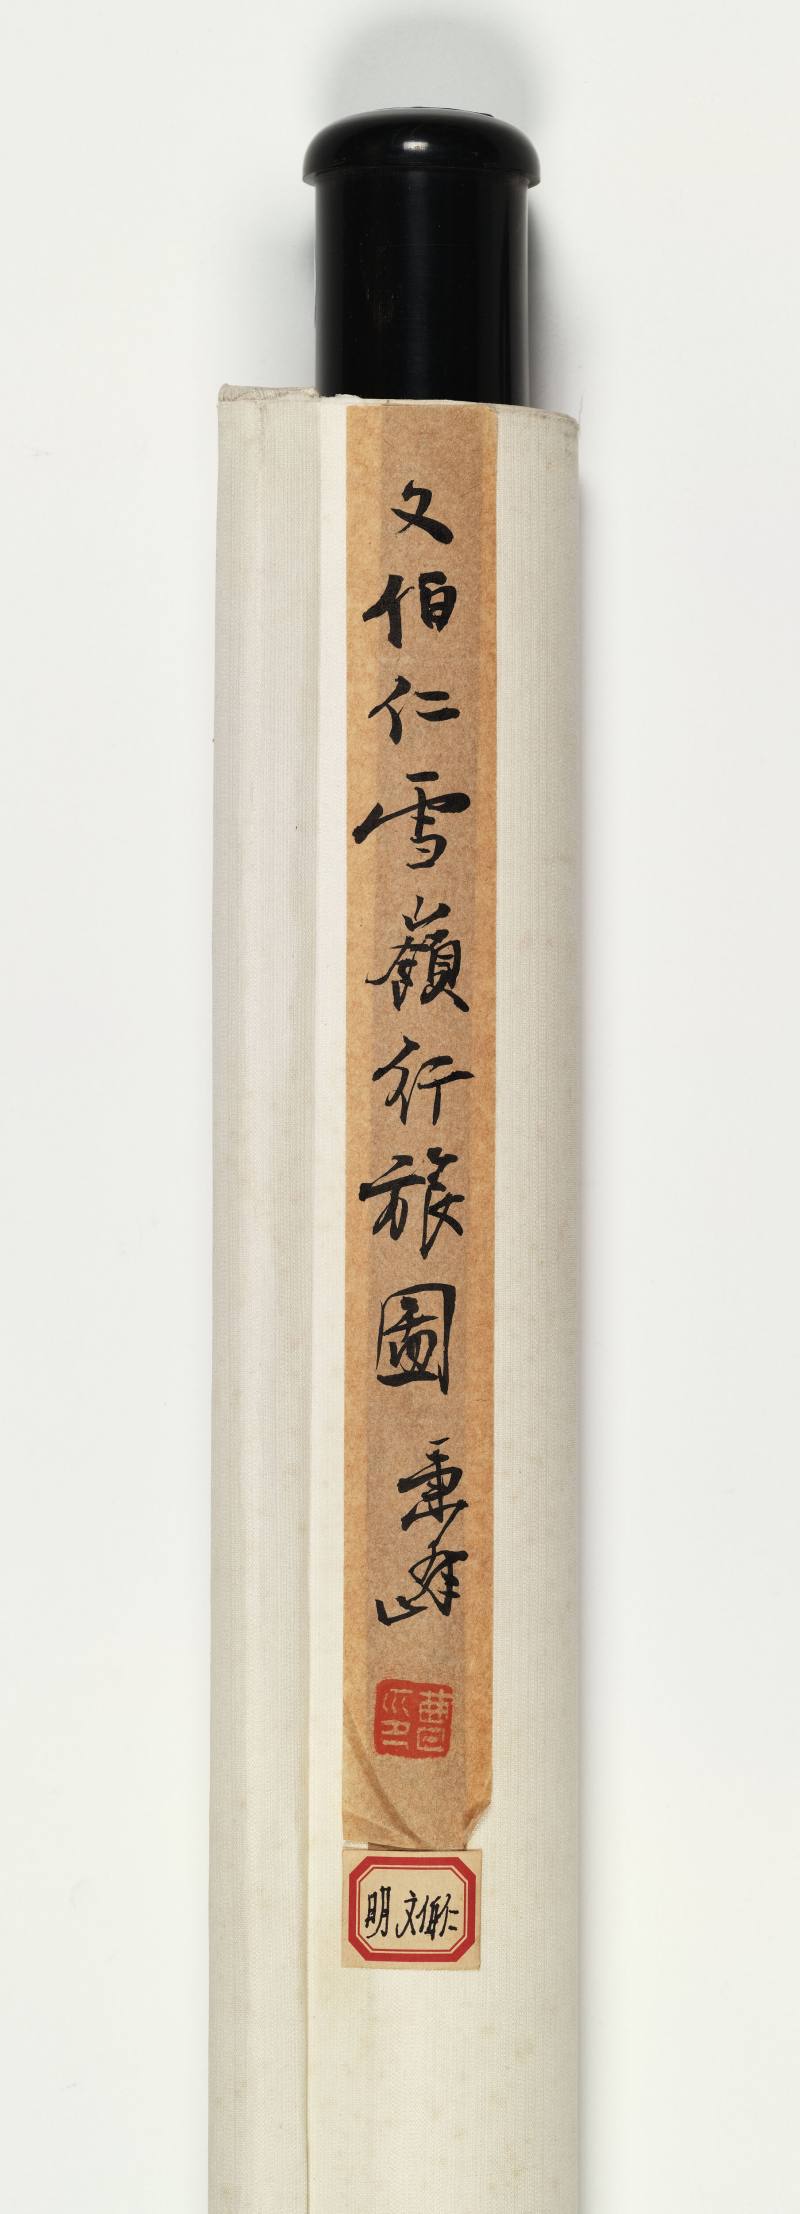 文伯仁雪嶺行旅圖 秉峰
明 文伯仁